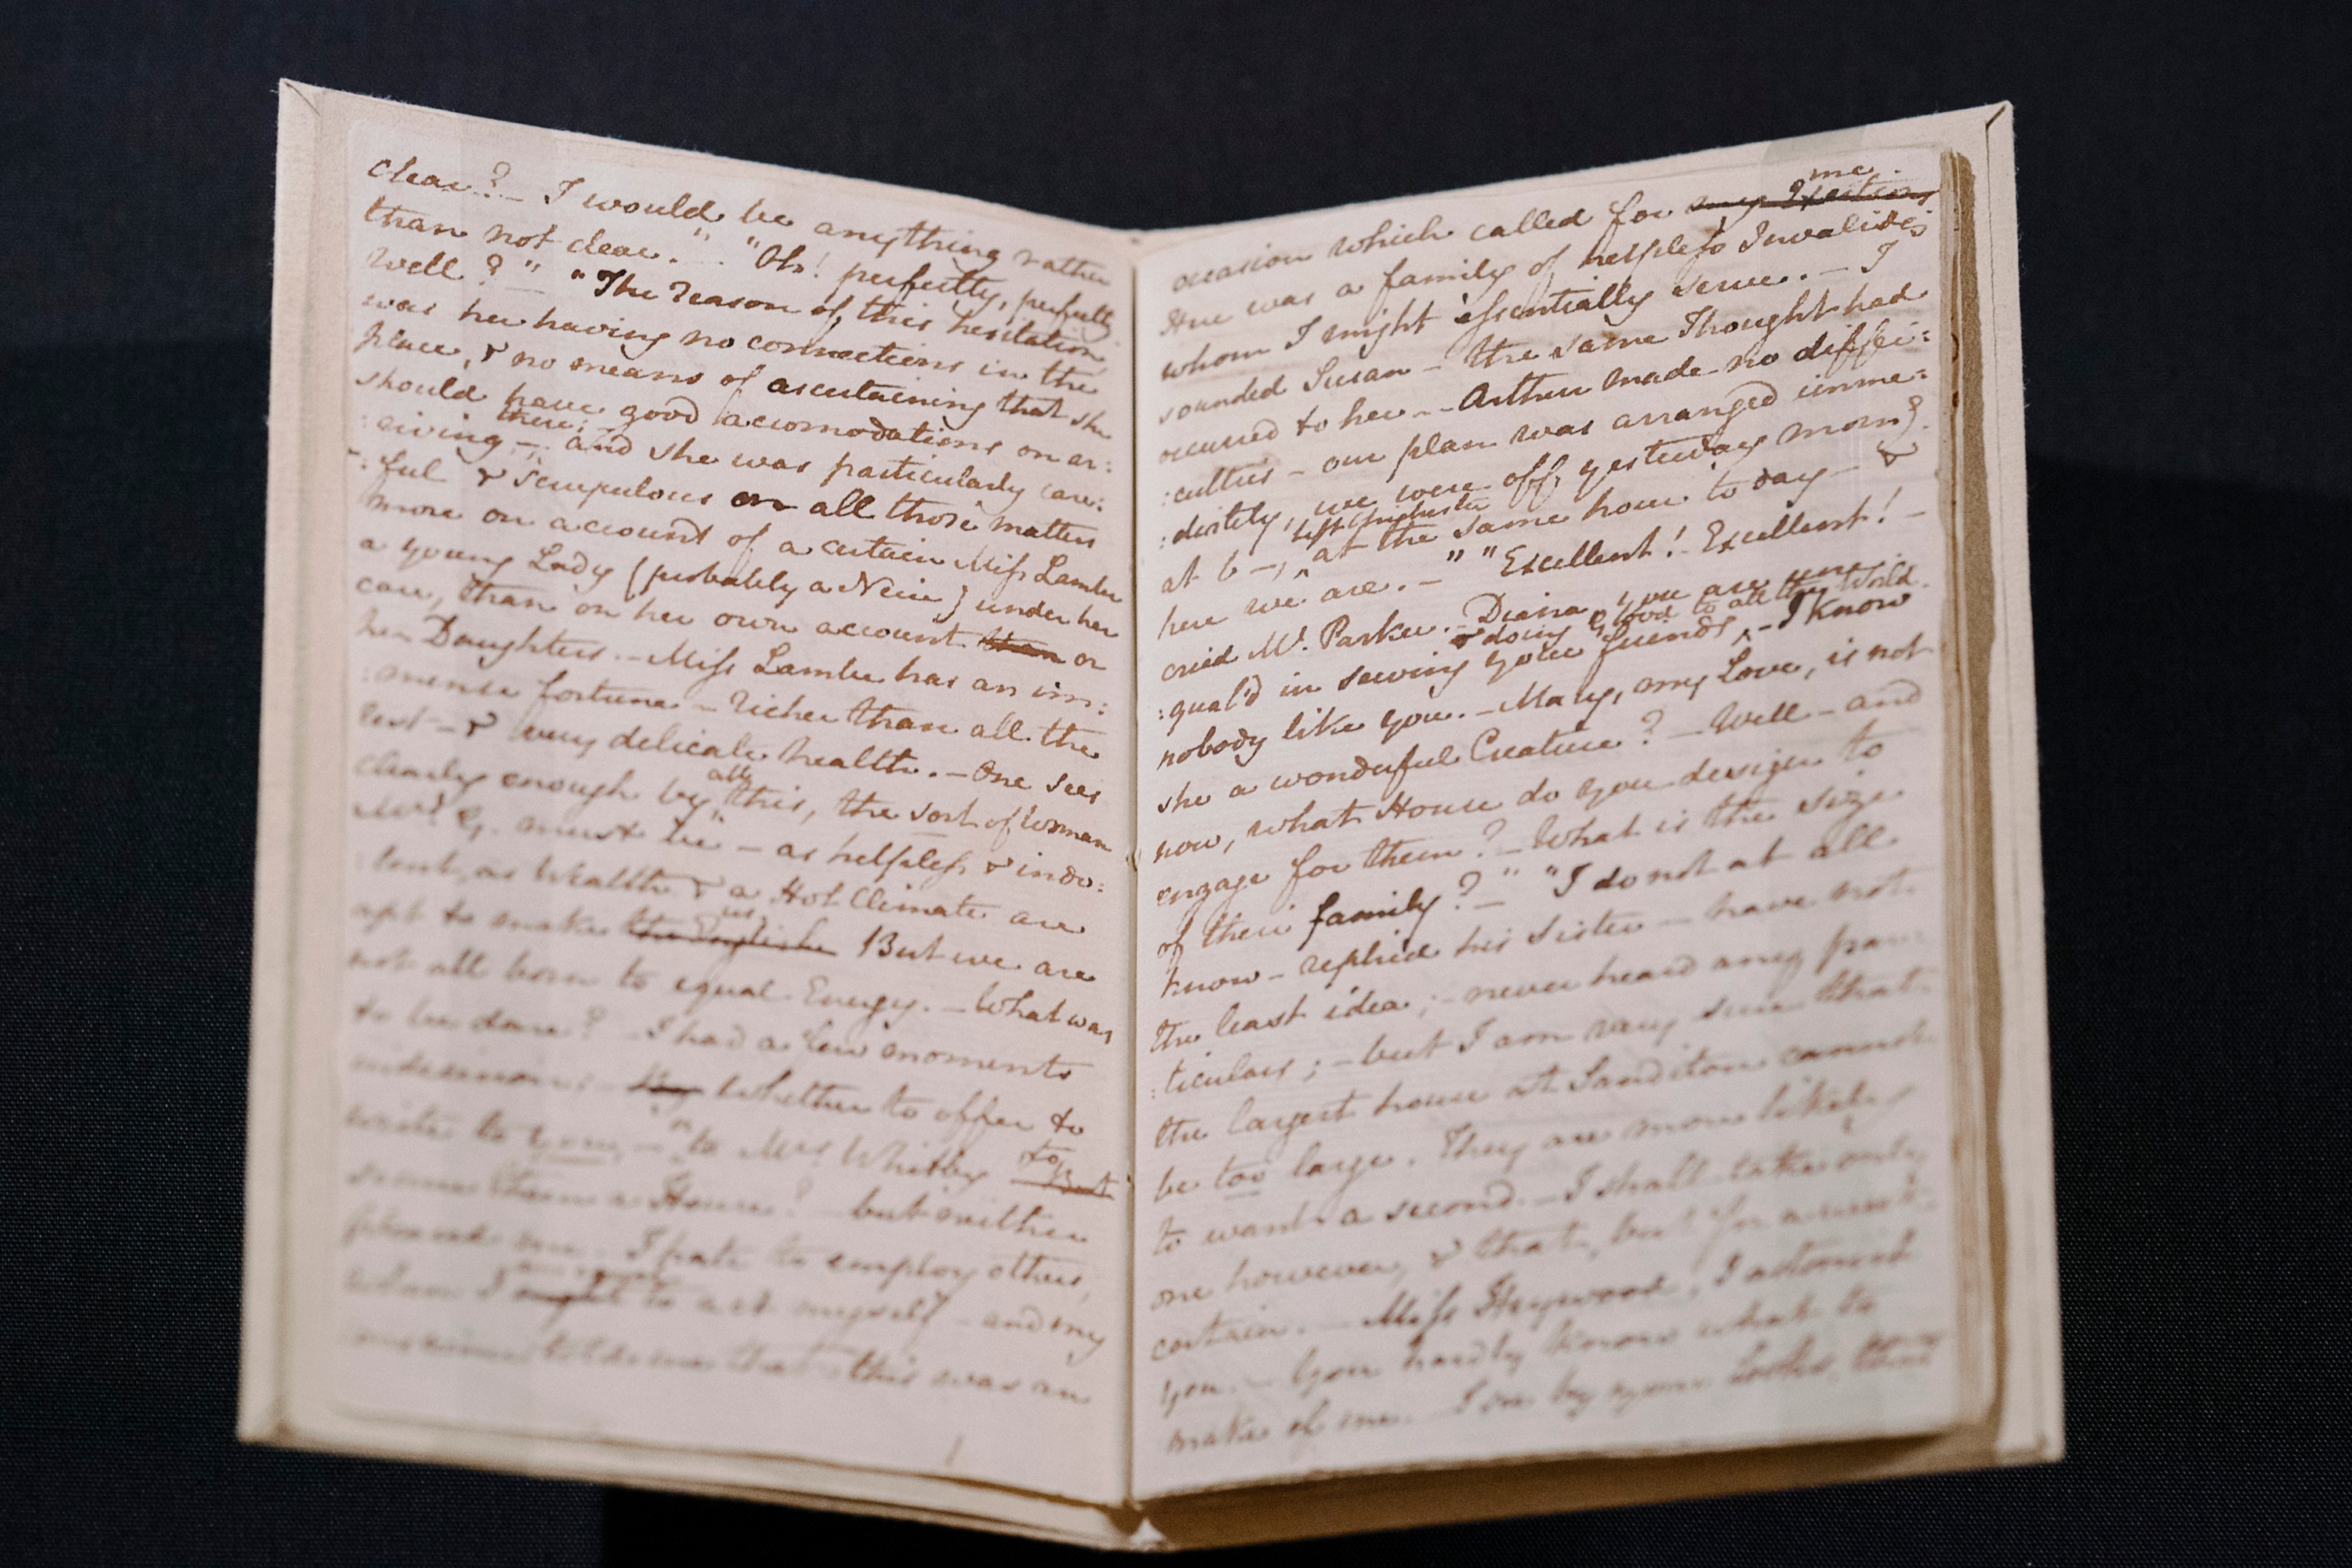 clear? – I would be anything rather
than not clear." – "Oh! perfectly, perfectly
well?" – "The reason of this hesitation
was her having no connections in the
place, & no means of ascertaining that she
should have good accomodations on ar:
:riving there; – and she was particularly care:
:ful & scrupulous on all those matters
more on account of a certain Miss Lambe
a young Lady (probably a Neice) under her
care, than on her own account than or
her Daughters. – Miss Lambe has an im:
:mense fortune – richer than all the
rest – & very delicate health. – One sees
clearly enough by all this, the sort of Woman
Mrs. G. must be – as helpless & indo:
:lent, as Wealth & a Hot Climate are
apt to make the English us. But we are
not all born to equal Energy. – What was
to be done? – I had a few moments
indecision; – Whether to offer to
write to you, – or to Mrs. Whitby to But
secure them a House? – but neither
pleased me. – I hate to employ others,
when I am equal to act myself – and my
conscience told me that this was an
occasion which called for my Exertions me.
Here was a family of helpless Invalides
whom I might essentially serve. – I
sounded Susan – the same Thought had
occurred to her. – Arthur made no diffi:
:culties – our plan was arranged imme:
:diately, we were off yesterday morng.
at 6 –, left Chichester at the same hour to day – &
here we are. – " "Excellent! – Excellent! –
cried Mr. Parker. – Diana, you are une:
:qual'd in serving your friends & doing Good to all the World. – I know
nobody like you. – Mary, my Love, is not
she a wonderful Creature? – Well – and
now, what House do you design to
engage for them? – What is the size
of their family? – " "I do not at all
know – replied his Sister – have not
the least idea; – never heard any par:
:ticulars; – but I am very sure that
the largest house at Sanditon cannot
be too large. They are more likely
to want a second. – I shall take only
one however, & that, but for a week
certain. – Miss Heywood, I astonish
you. – You hardly know what to
make of me. – I see by your Looks, that